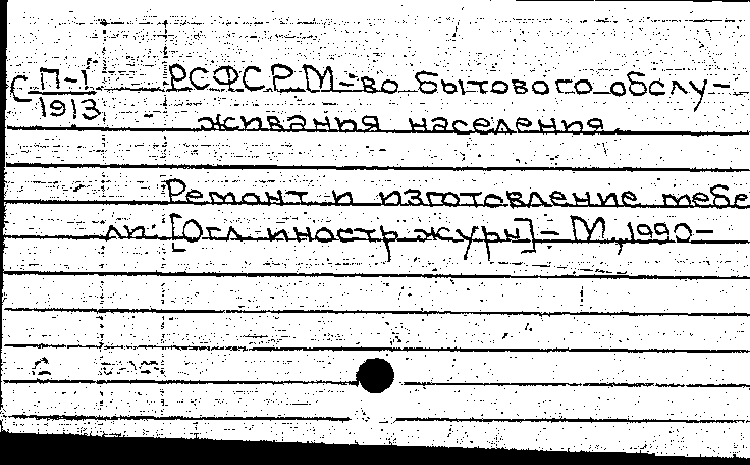 С П-1 РСФСР. М-во бытового обслу-
1913 живания населения.
Ремонт и изготовление мебе
ли: [Огл. иностр. журн] - М., 1990-